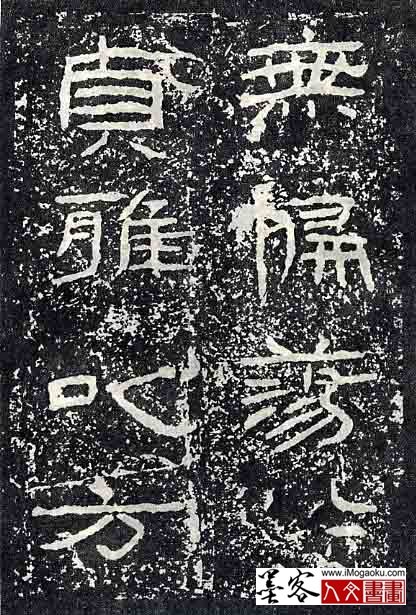 無偏蕩〻
貞雅以方
墨客
www.iMogaoku.com
人文書畫